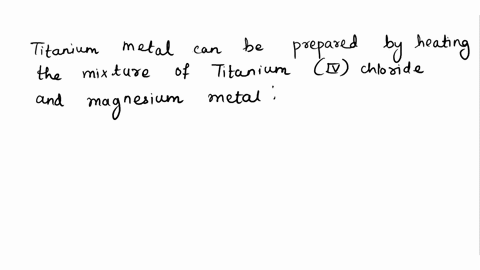 Titanium metal can be prepared by heating
the mixture of Titanium (IV) chloride
and magnesium metal :